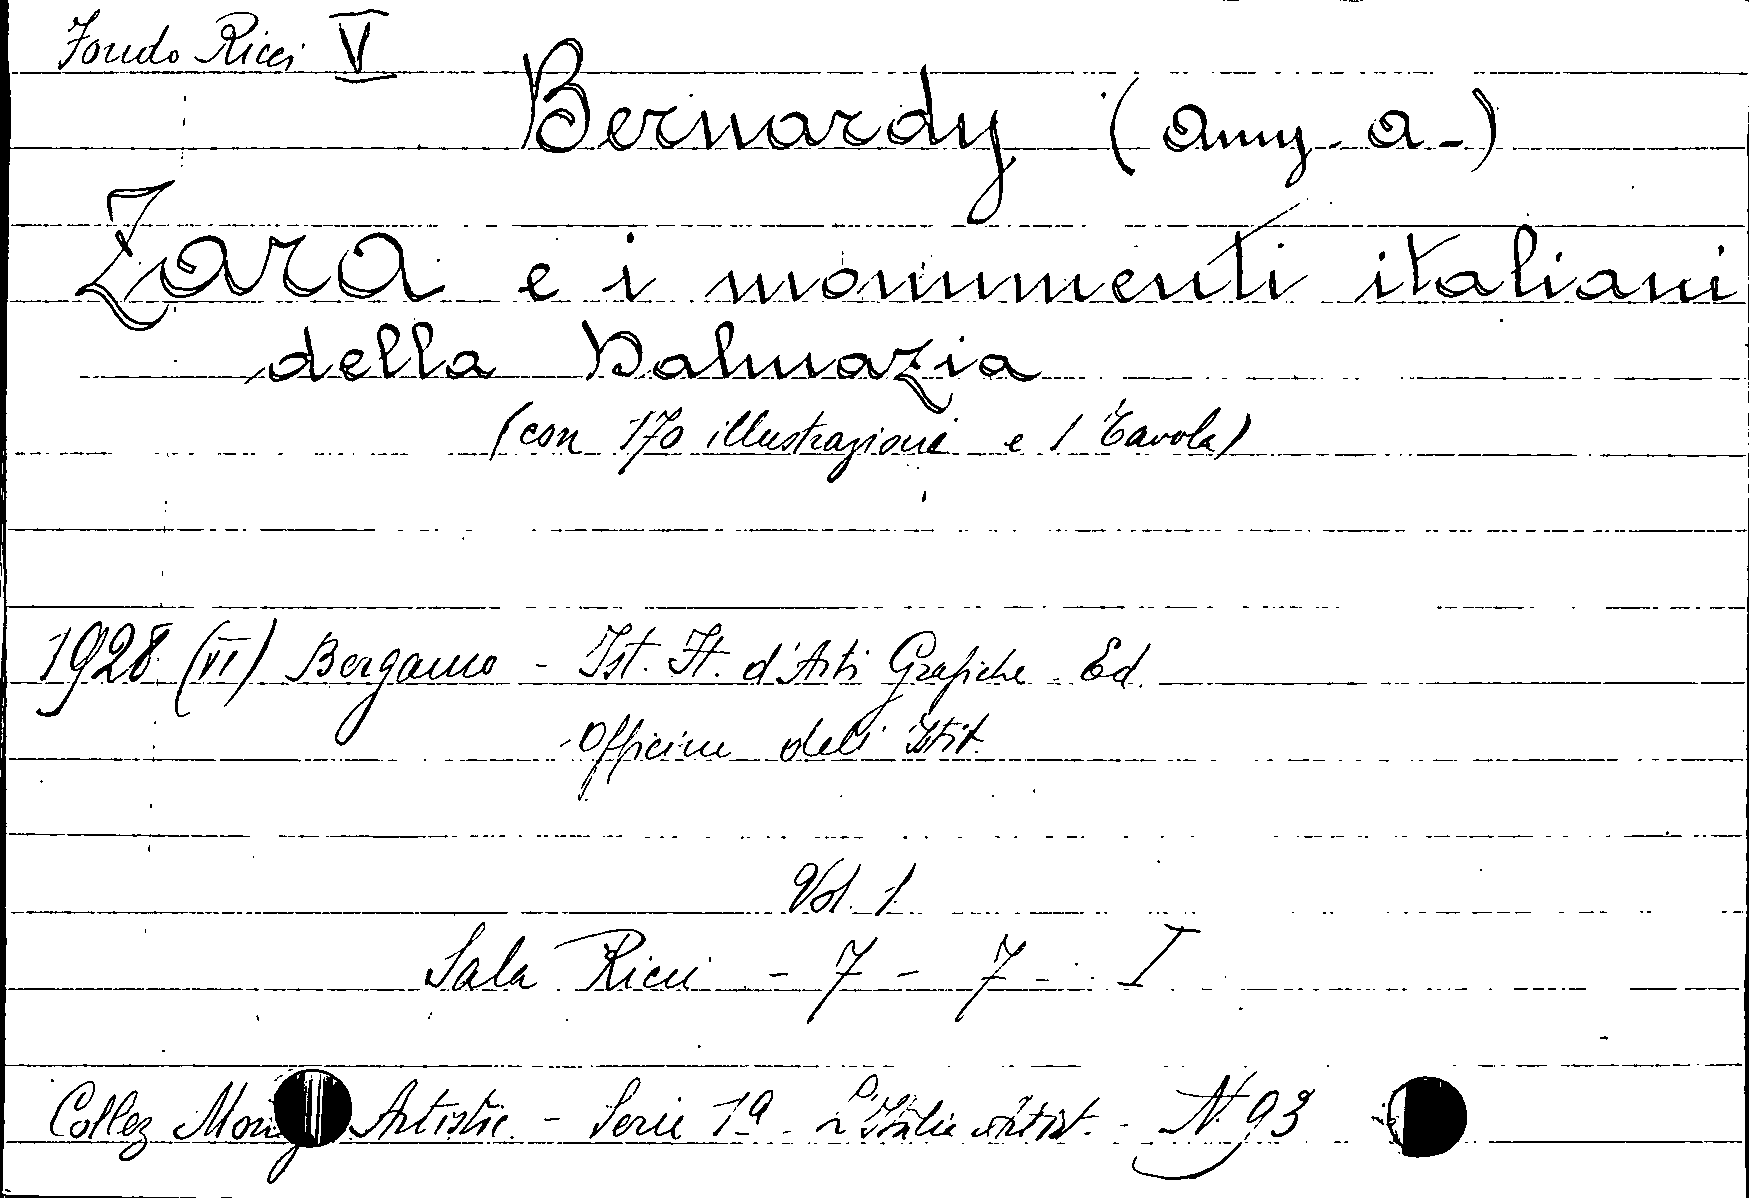 Fondo Ricci V
Bernardy (Amy. A-)
Zara e i monumenti italiani
della Dalmazia
(con 170 illustrazioni e 1 Tavola)
1928 (VI) Bergamo - Ist. It. d'Arti Grafiche. Ed.
Officine dell' Istit.
Vol. 1
Sala Ricci - 7 - 7 - I
Collez Artistic. - Serie 1a - L'Italia Artist. - N. 93